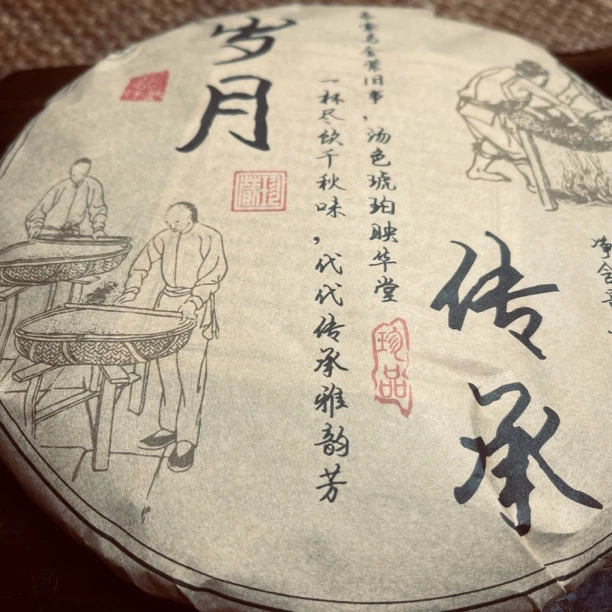 岁月
传承
旧事，汤色琥珀映华堂
一杯尽饮千秋味，代代传承雅韵芳
珍品
净含